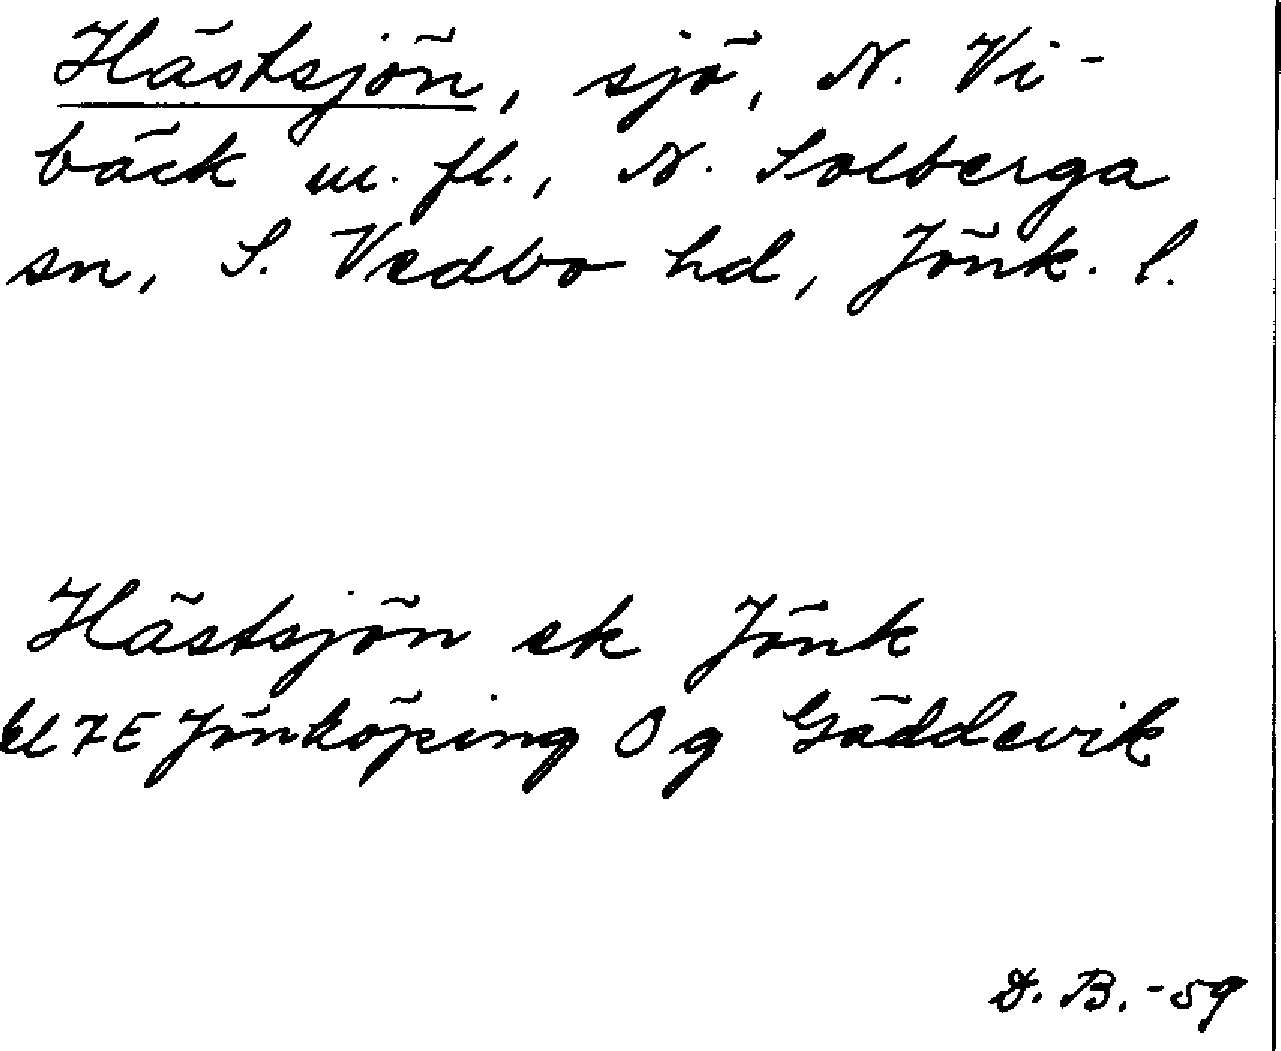 Hästsjön, sjö, N. Vi-
bäck m. fl., N. Solberga
sn, S. Vedbo hd, Jönk. l.
Hästsjön ek Jönk
bl 7E Jönköping Og Gäddevik
D. B. -59